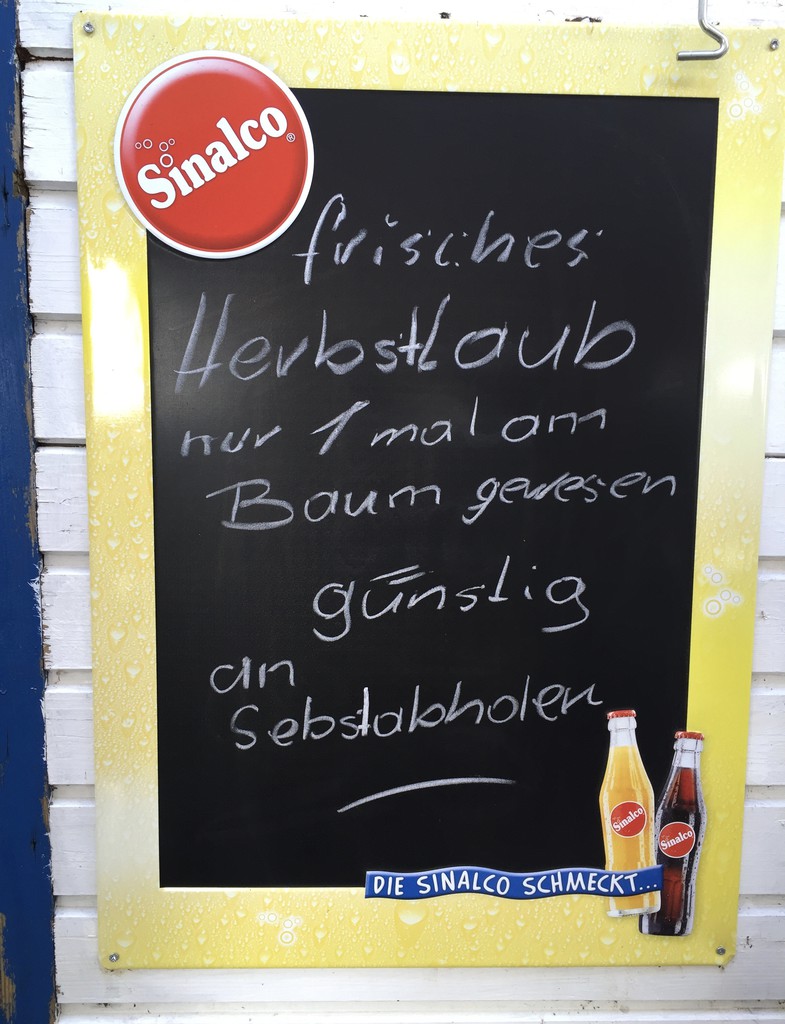 Sinalco®
frisches
Herbstlaub
nur 1 mal am
Baum gewesen
günstig
an
Sebstabholen
Sinalco
Sinalco
DIE SINALCO SCHMECKT...